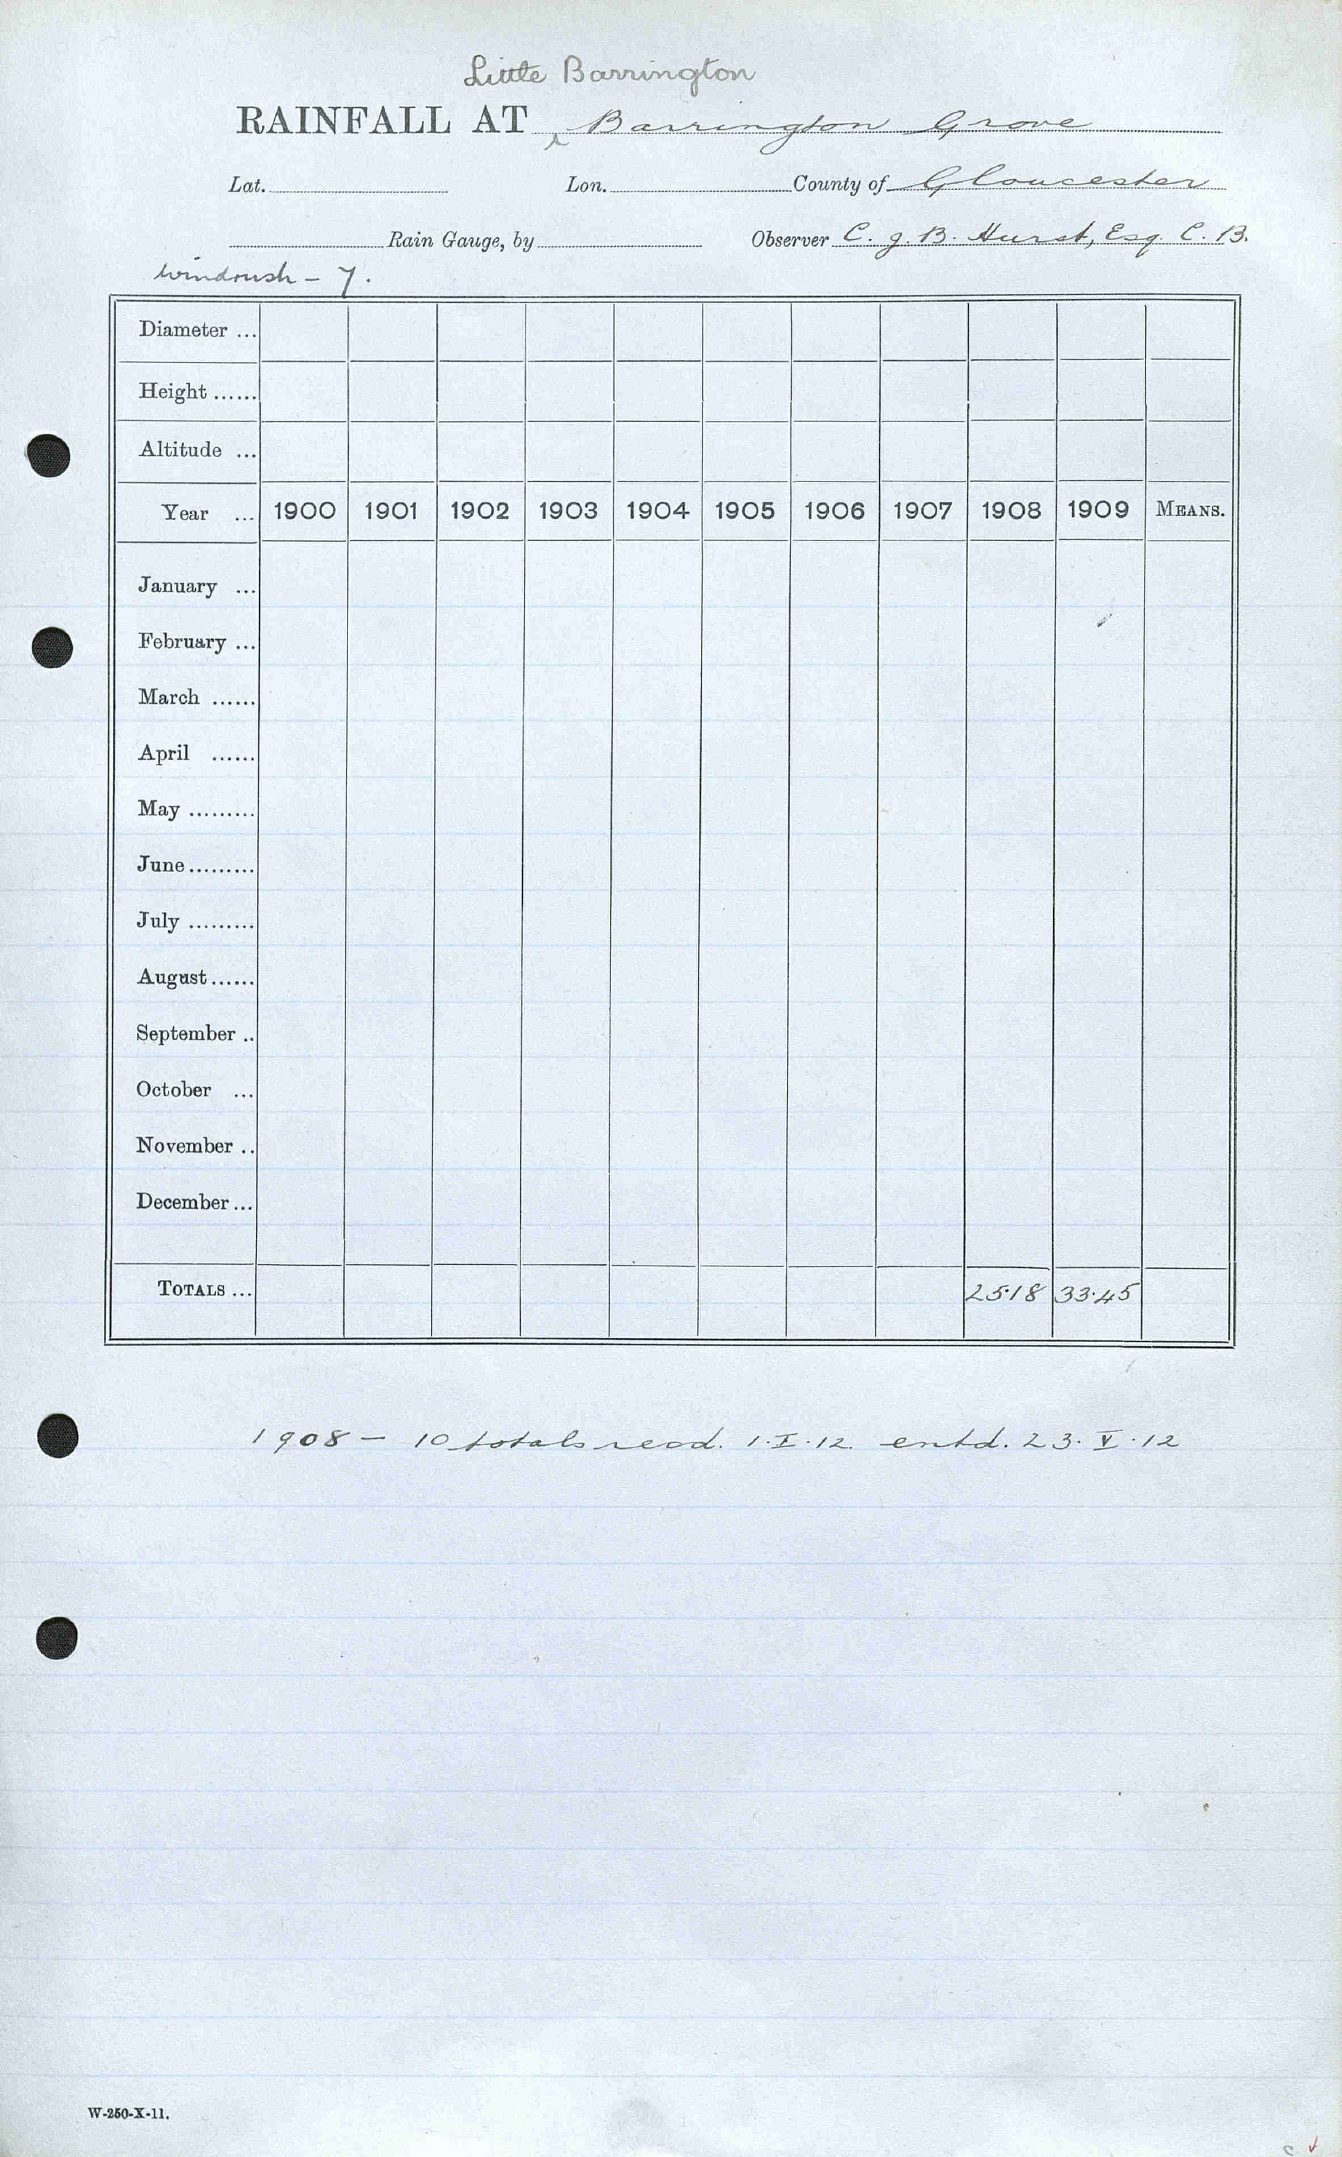 Little Barrington
RAINFALL AT Barrington Grove
Lat. Lon. County of Gloucester
Rain Gauge, by Observer C. J. B. Hurst, Esq. C. B.
Windrush - 7.
Diameter ...
Height ......
Altitude ...
Year ... 1900 1901 1902 1903 1904 1905 1906 1907 1908 1909 MEANS.
January ...
February ...
March ......
April ......
May .........
June .........
July .........
August ......
September ..
October ...
November ..
December ...
TOTALS ... 25·18 33·45
1908 - 10 totals recd. 1·I·12. entd. 23·V·12
W-250-X-11.